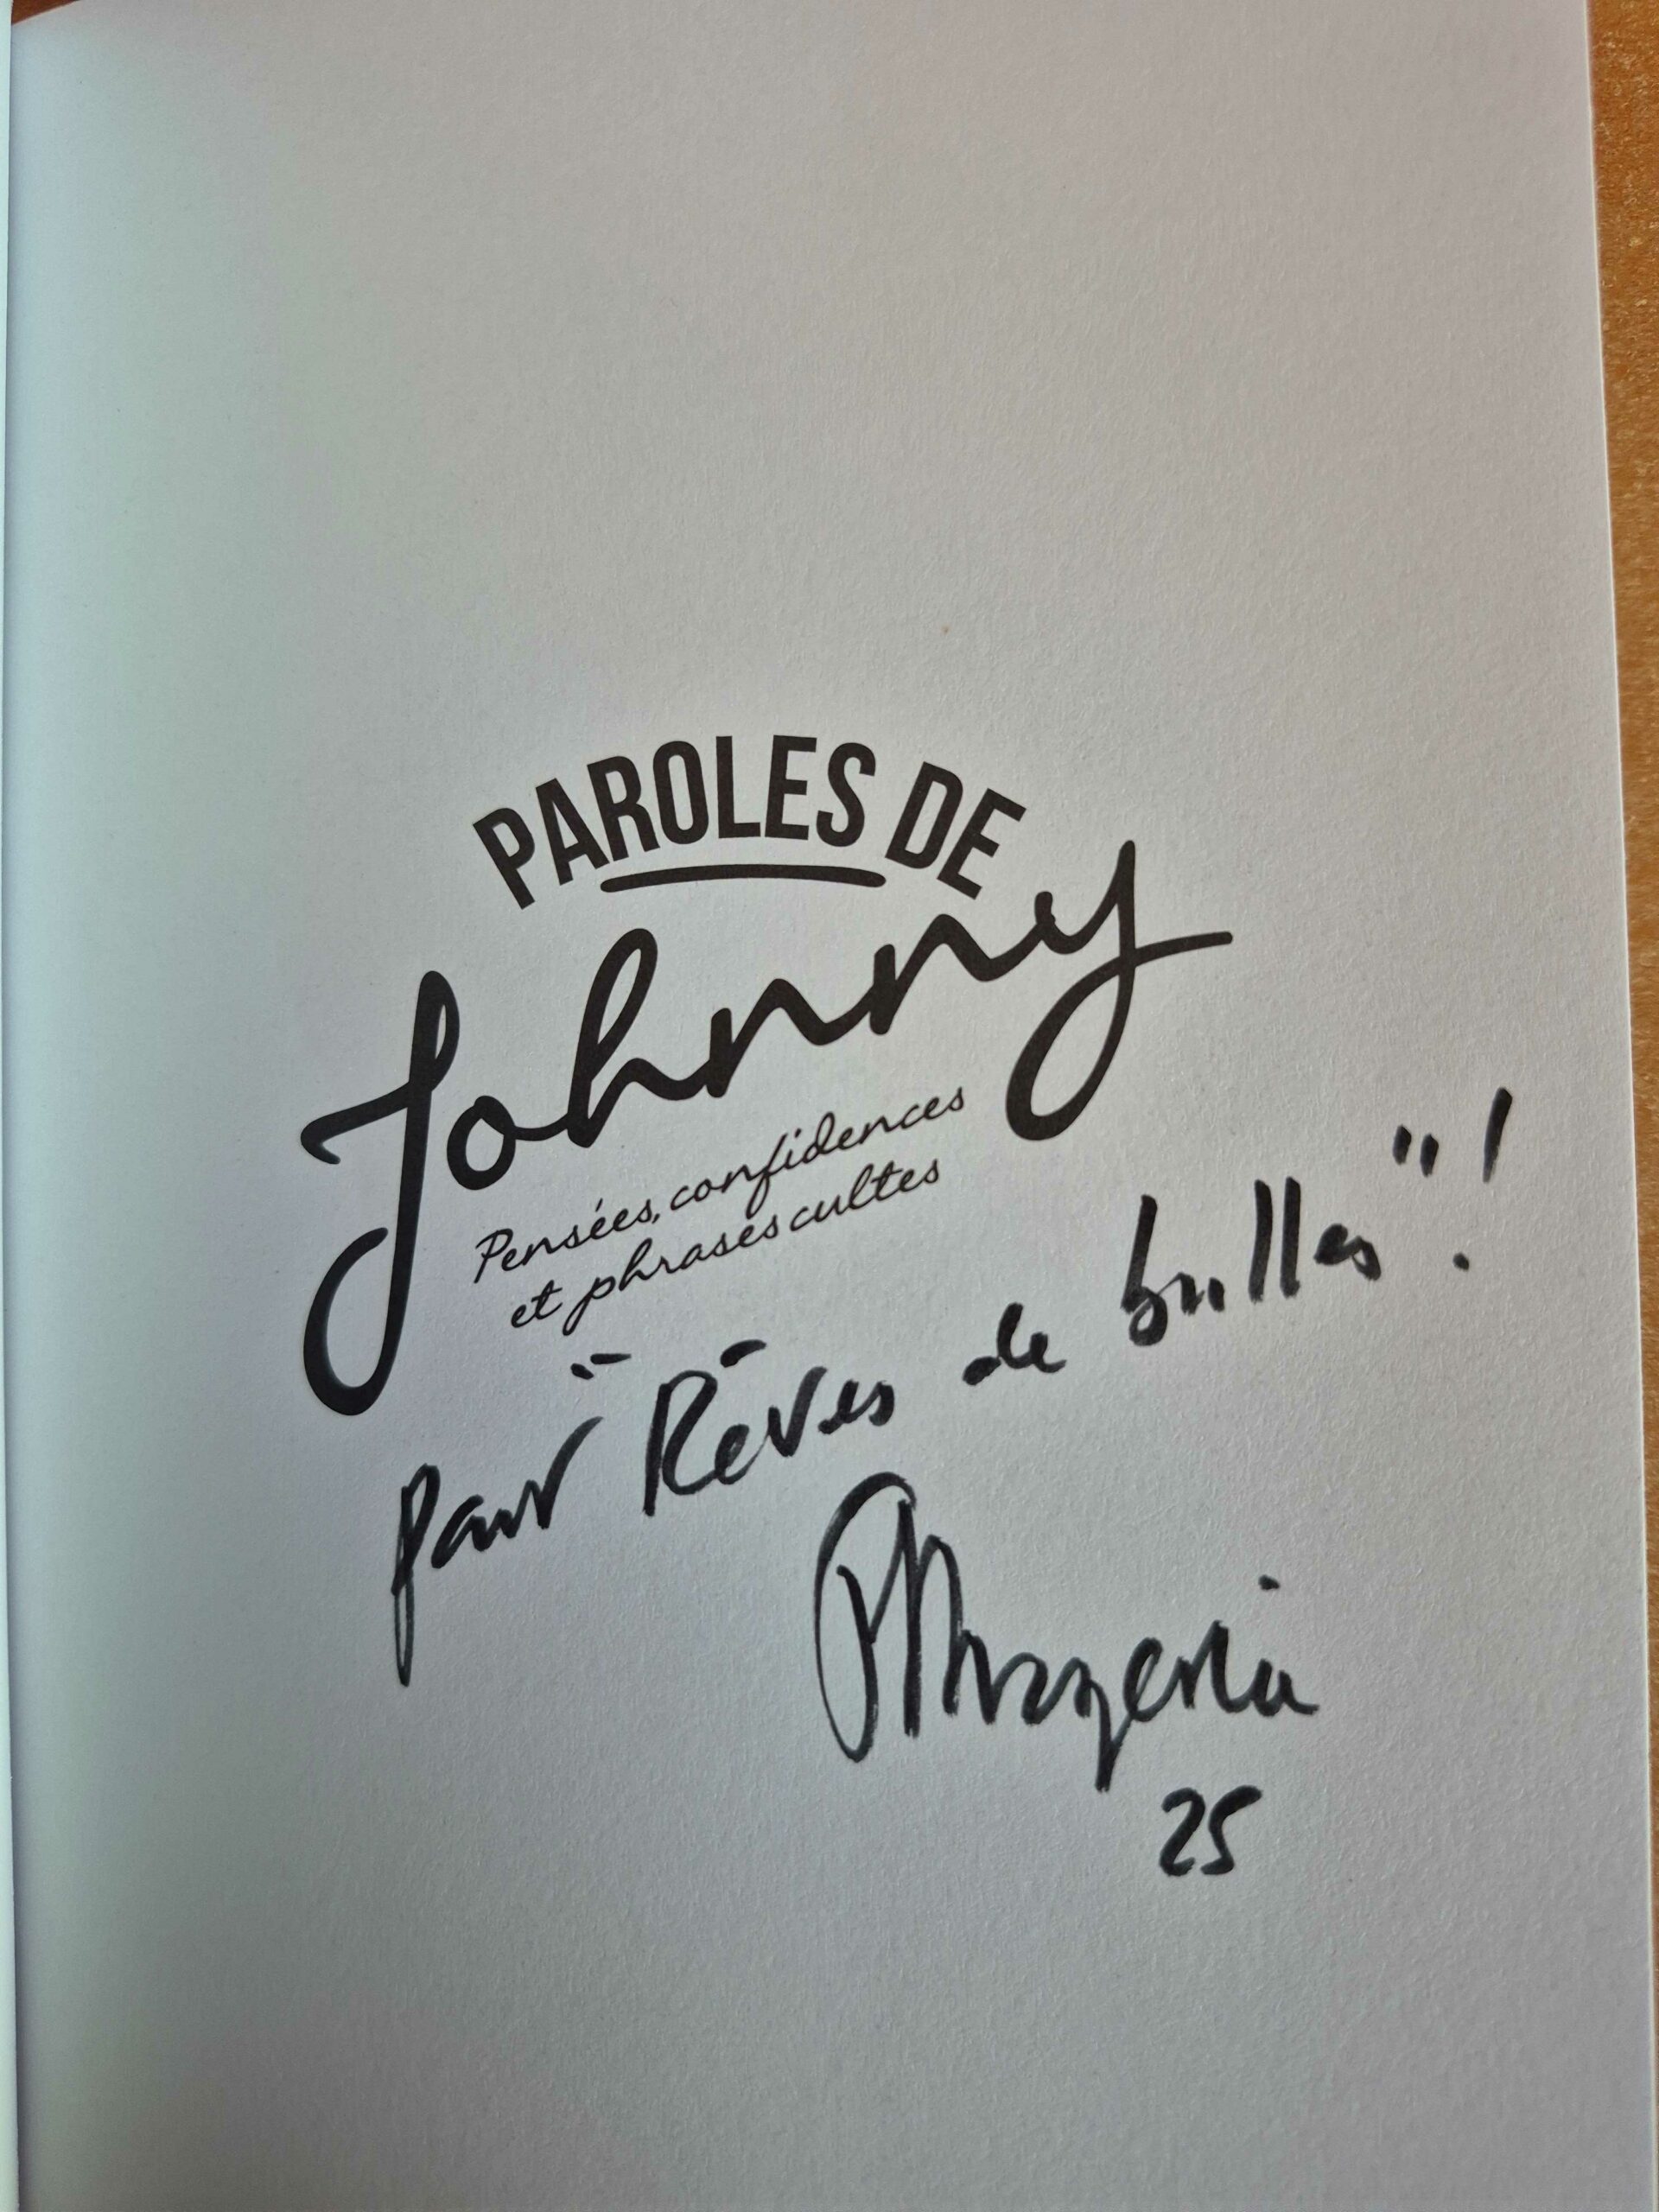 PAROLES DE
Johnny
Pensées, confidences
et phrases cultes
pour "Rêves de bulles"!
25